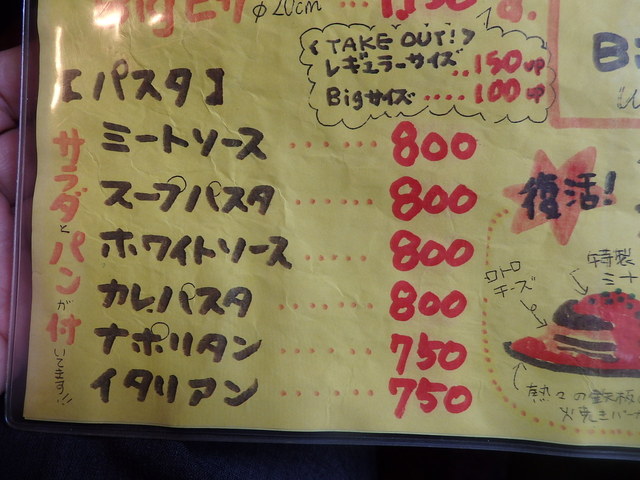 φ20cm
<TAKE OUT!>
レギュラーサイズ‥150UP
Bigサイズ‥‥100UP
【パスタ】
ミートソース ‥‥‥ 800
スープパスタ ‥‥‥ 800
ホワイトソース ‥‥‥ 800
カレーパスタ ‥‥‥ 800
ナポリタン ‥‥‥ 750
イタリアン ‥‥‥ 750
サラダとパンが付いてます!!
復活!
特製
ミナ
トロトロ
チーズ
熱々の鉄板